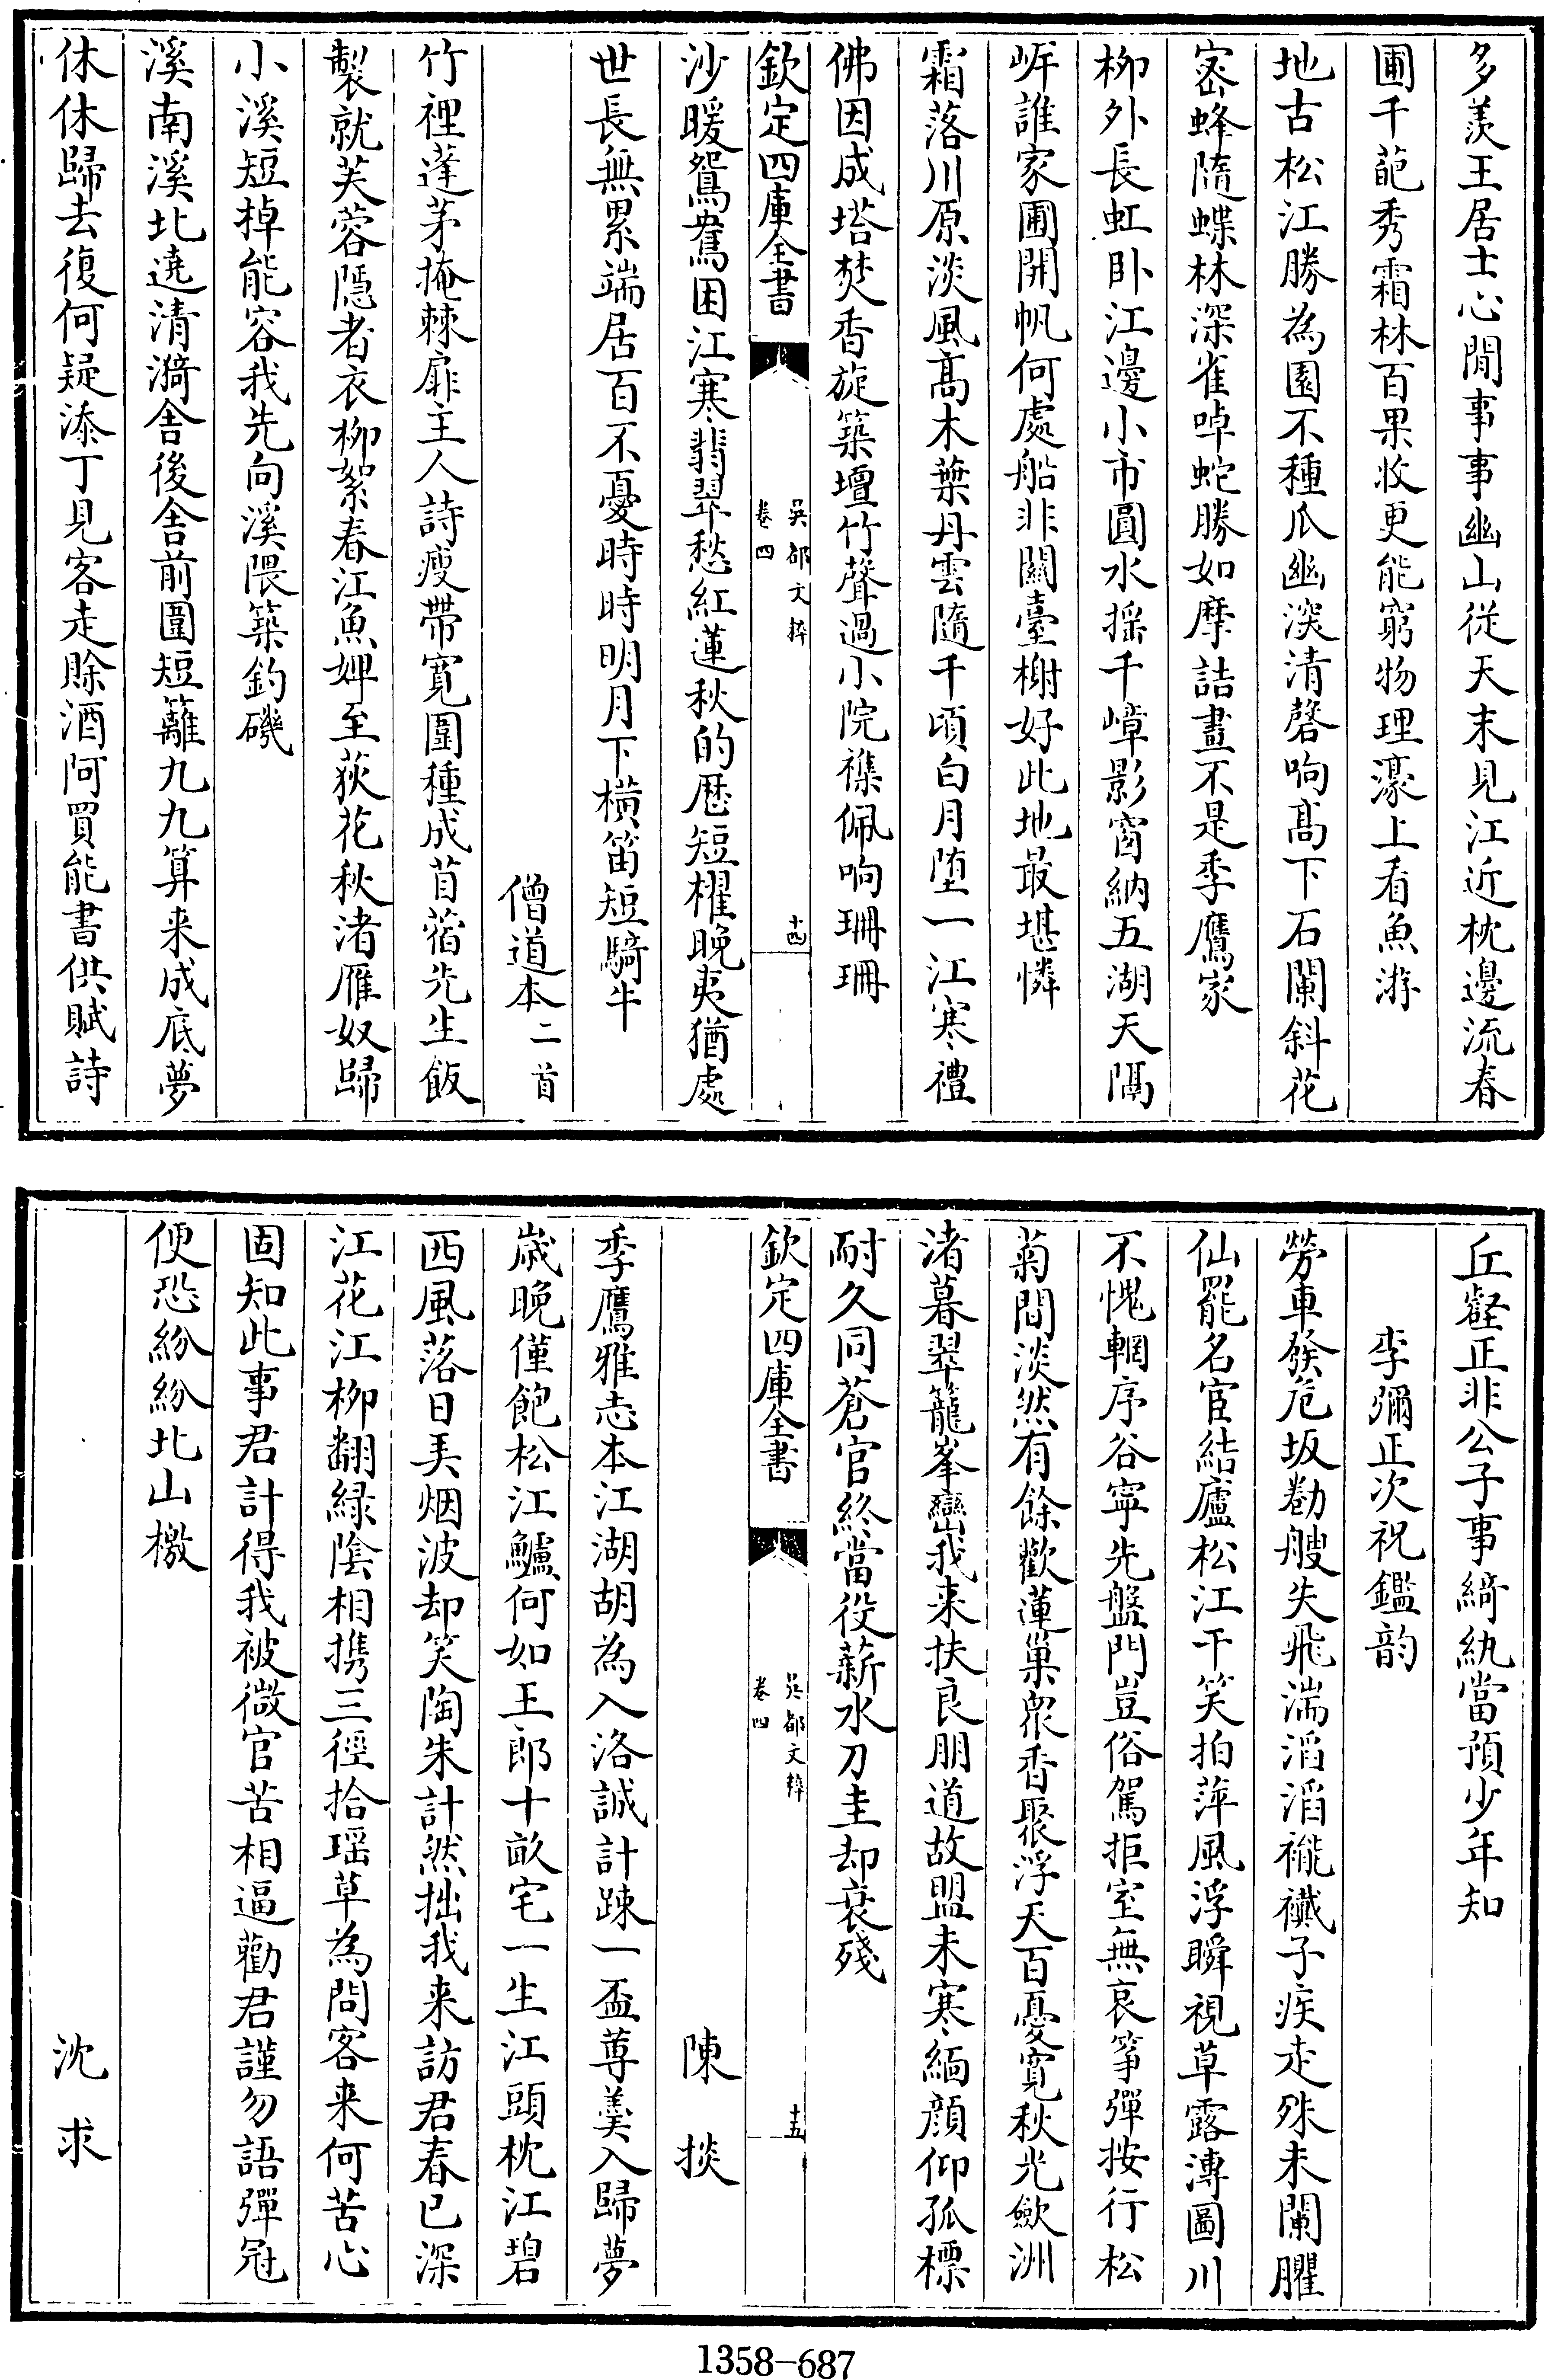 多羨王居士心閒事事幽山從天末見江近枕邊流春
圃千葩秀霜林百果收更能窮物理濠上看魚游
地古松江勝為園不種瓜幽深清磬响髙下石闌斜花
宻蜂隨蝶林深雀啅蛇勝如摩詰畫不是季鷹家
柳外長虹卧江邊小市圓水揺千嶂影窗納五湖天隔
㟁誰家圃開帆何處船非闗臺榭好此地最堪憐
霜落川原淡風髙木葉丹雲隨千頃白月堕一江寒禮
佛因成塔焚香旋築壇竹聲過小院襍佩响珊珊
欽定四庫全書
吳都文粹
卷四
十四
沙暖鴛鴦困江寒翡翠愁紅蓮秋的歴短櫂晚夷猶處
世長無累端居百不憂時時明月下横笛短騎牛
僧道本二首
竹裡蓬茅掩棘扉主人詩瘦帶寛圍種成苜蓿先生飯
製就芙蓉隠者衣柳絮春江魚婢至荻花秋渚雁奴歸
小溪短棹能容我先向溪隈築釣磯
溪南溪北遶清漪舎後舎前圍短籬九九算来成底夢
休休歸去復何疑添丁見客走賒酒阿買能書供賦詩
丘壑正非公子事綺紈當預少年知
李彌正次祝鑑韵
勞車發危坂勸艘失飛湍滔滔襹襳子疾走殊未闌臞
仙罷名宦結廬松江干笑拍萍風浮瞬視草露漙圖川
不愧輞序谷寧先盤門豈俗駕拒室無哀筝彈按行松
菊間淡然有餘歡蓮巢衆香聚浮天百憂寛秋光歛洲
渚暮翠籠峯巒我来扶良朋道故盟未寒緬顔仰孤標
耐久同蒼官終當役薪水刀圭却衰殘
欽定四庫全書
吳都文粹
卷四
十五
陳掞
季鷹雅志本江湖胡為入洛誠計踈一盃蓴羮入歸夢
歳晚僅飽松江鱸何如王郎十畝宅一生江頭枕江碧
西風落日弄烟波却笑陶朱計然拙我来訪君春已深
江花江柳翻緑陰相携三徑拾瑶草為問客来何苦心
固知此事君計得我被微官苦相逼勸君謹勿語彈冠
便恐紛紛北山檄
沈求
1358-687